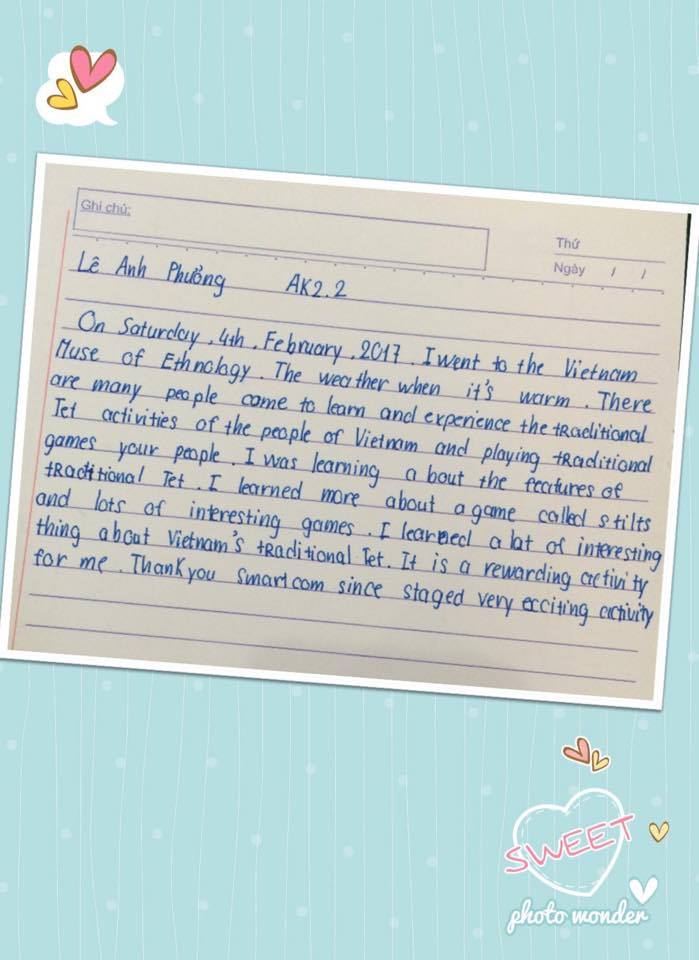 Ghi chú:
Thứ
Ngày / /
Lê Anh Phưởng AK2.2
On Saturday, 4th, February, 2017. I went to the Vietnam
Muse of Ethnology. The weather when it's warm. There
are many people come to learn and experience the traditional
Tet activities of the people of Vietnam and playing traditional
games your people. I was learning a bout the features of
traditional Tet. I learned more about a game called stilts
and lots of interesting games. I learned a lot of interesting
thing about Vietnam's traditional Tet. It is a rewarding activity
for me. Thank you Smartcom since staged very exciting activity
SWEET
photo wonder